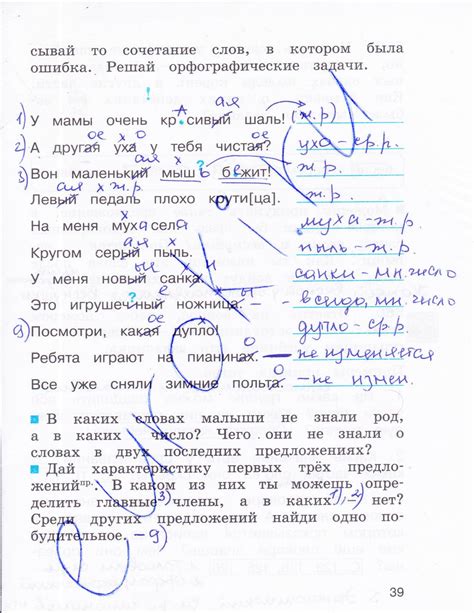 сывай то сочетание слов, в котором была
ошибка. Решай орфографические задачи.
!
1) У мамы очень кр.сивый шаль! (ж.р) А ая
2) А другая уха у тебя чистая? уха-ср.р. ое х о ое
3) Вон маленький мыш ь б е жит! ж.р. ая х ?
Левый педаль плохо крути[ца]. ж.р. ая х ж.р.
На меня мухасела муха-ж.р.
Кругом серый пыль. пыль-ж.р. ая х
У меня новый санка. санки-мн.число ый и
Это игрушечный ножница. - всегда, мн. число ? е ы
9) Посмотри, какая дупло! дупло-ср.р. ое
Ребята играют на пианинах. - не изменяется о
Все уже сняли зимние польта. - не измен. о
В каких словах малыши не знали род,
а в каких число? Чего они не знали о
словах в двух последних предложениях?
Дай характеристику первых трёх предло-
женийпр.. В каком из них ты можешь опре-
делить главные 3) члены, а в каких 1), 2) нет?
Среди других предложений найди одно по-
будительное. -9)
39